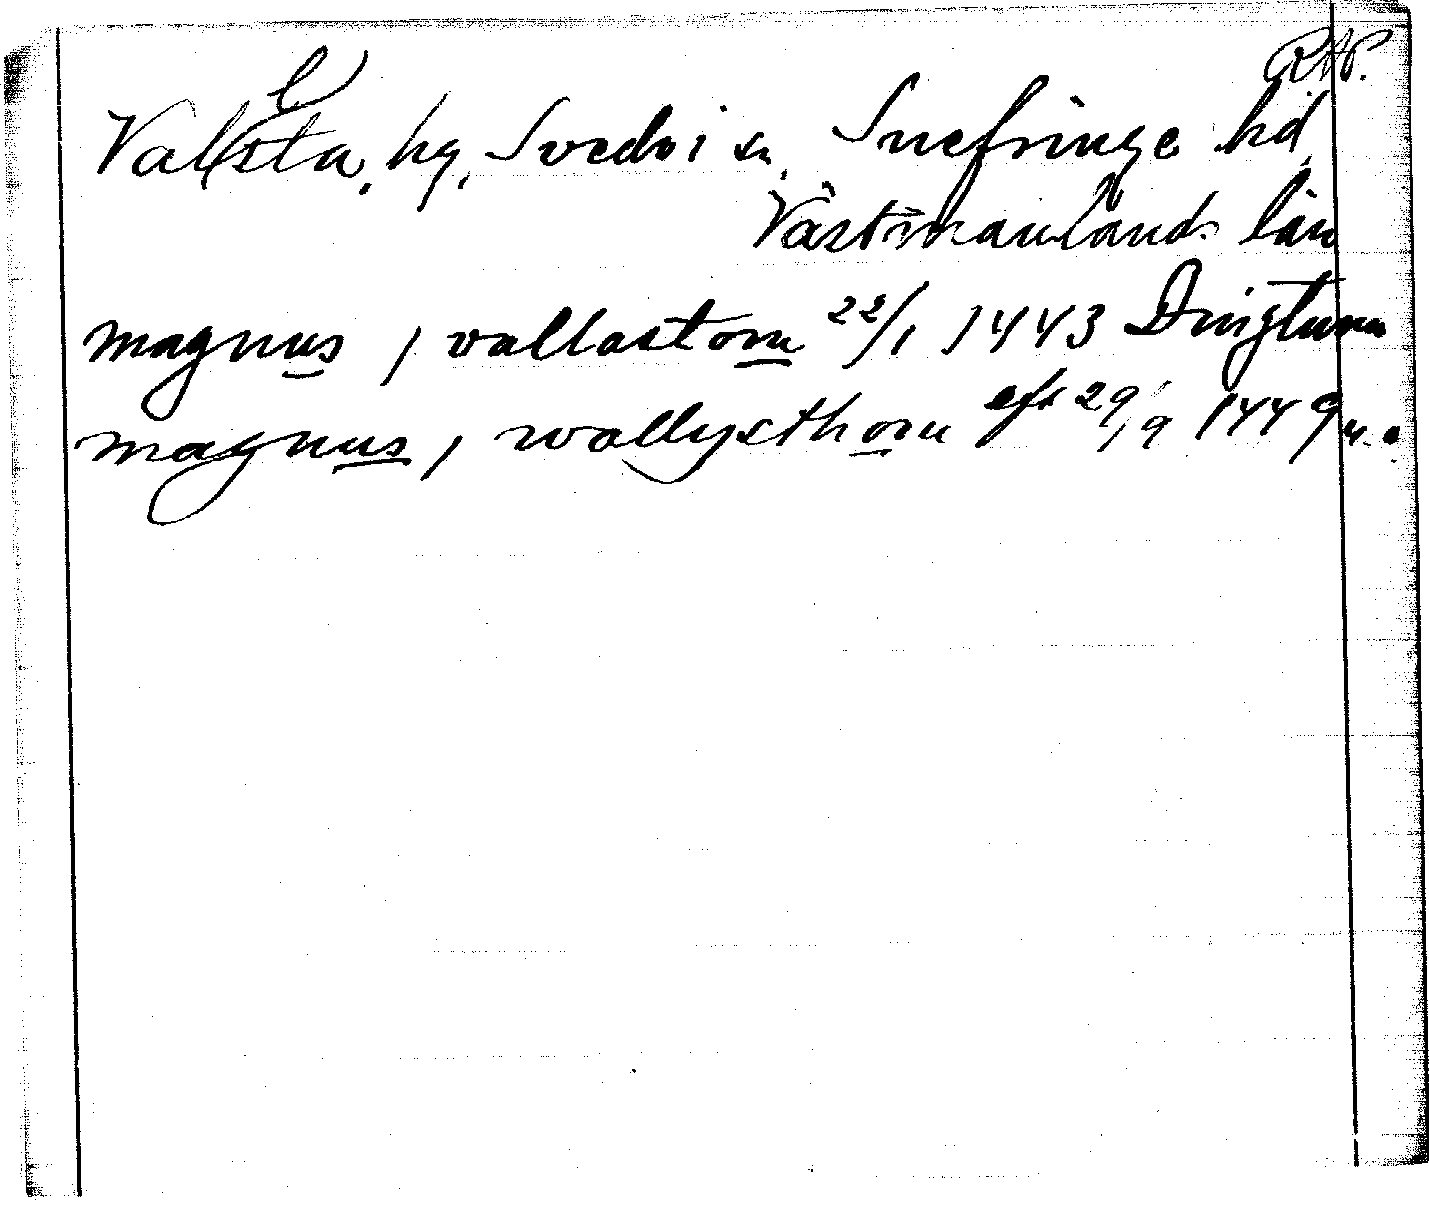 RAP.
Vallsta, hg, Svedvi sn, Snefringe hd,
Västmanlands län
magnus, i vallastom 22/1 1443 Dingtuna
magnus, i wallysthom eft 29/9 1449 u.o.